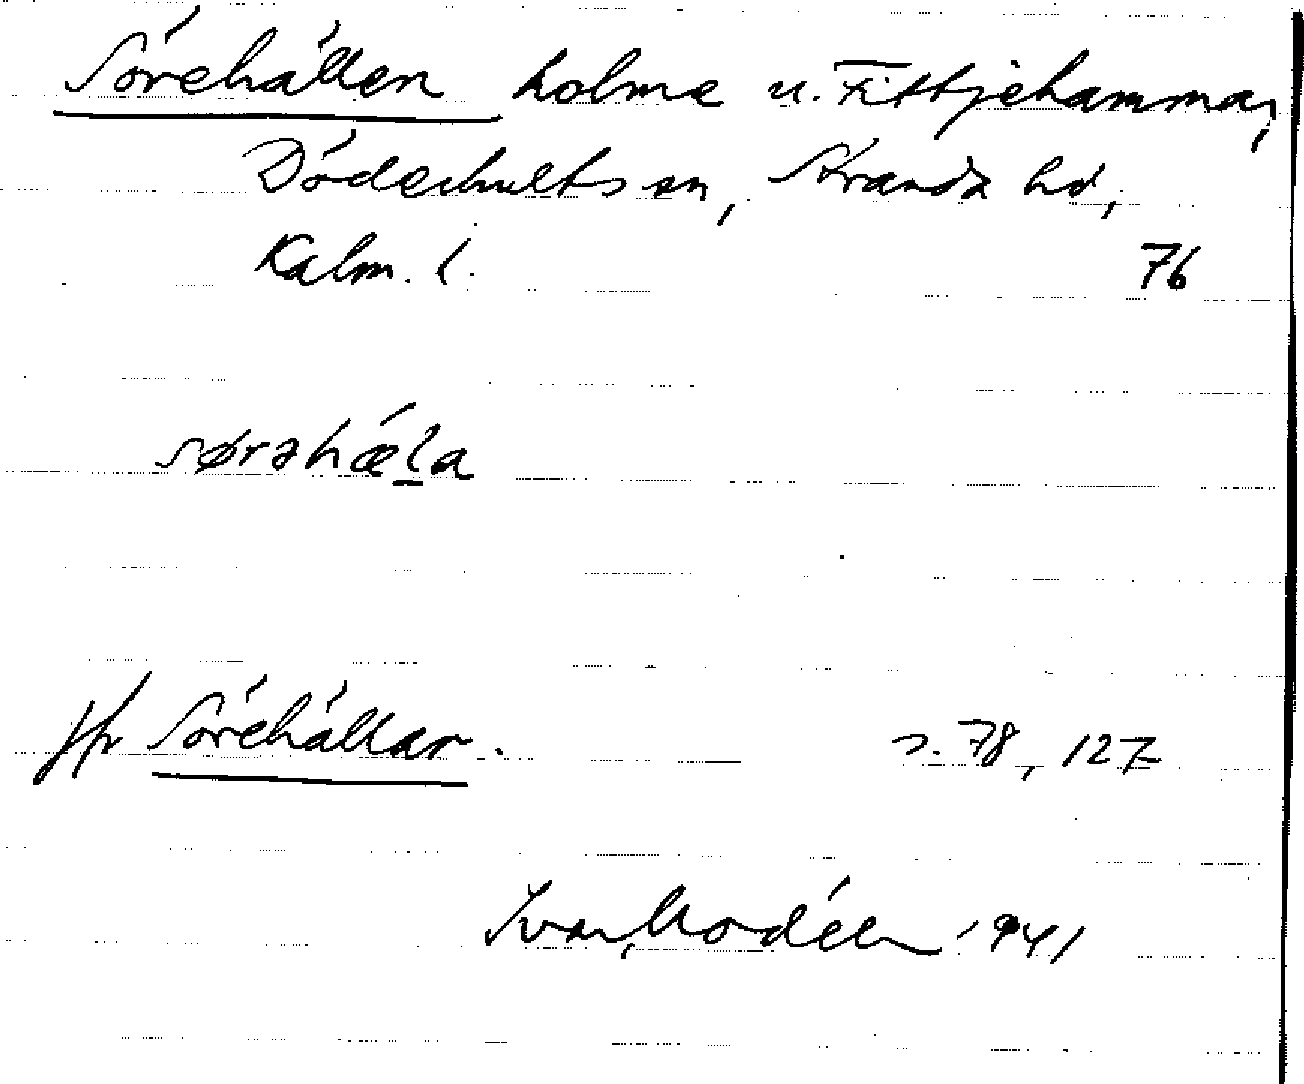 Sörehällen holme u. Fittjehammar,
Döderhults sn, Stranda hd,
Kalm. l. 76
sørəhæ̀l̲a
jfr Sörehällar. s. 78, 127
Ivar Modéer 1941